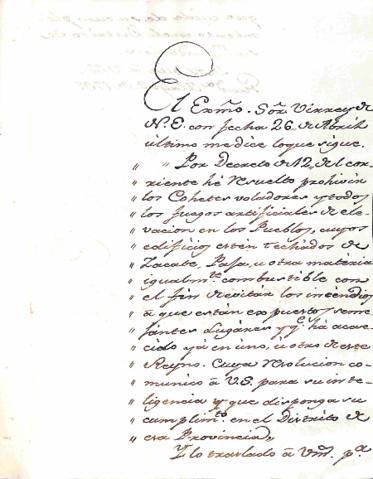 El Exmõ. Sõr. Virrey de
N. E. con fecha 26, de Abril
ultimo me dice lo que sigue.
" " Por Decreto de 12, del cor-
" riente hé resuelto prohivir
" los Cohetes voladores y todos
" los fuegos artificiales de ele-
" vacion en los Pueblos, cuyos
" edificios estén techados de
" Zacate, Paja, u otra materia
" igualmte. combustible con
" el fin de evitar los incendios
" á que están expuestos seme-
" jantes Lugares y qe. há acae-
" cido yá en uno, ú otro de este
" Reyno. Cuya resolucion co-
" munico á V.S. para su inte-
" ligencia y que disponga su
" cumplimto. en el Distrito de
" esa Provincia,,
Y lo traslado á Vmd. pa.